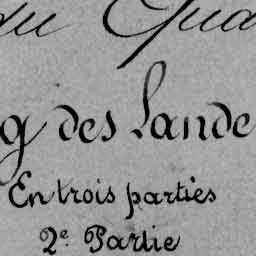 du Qua
g des Lande
En trois parties
2e Partie